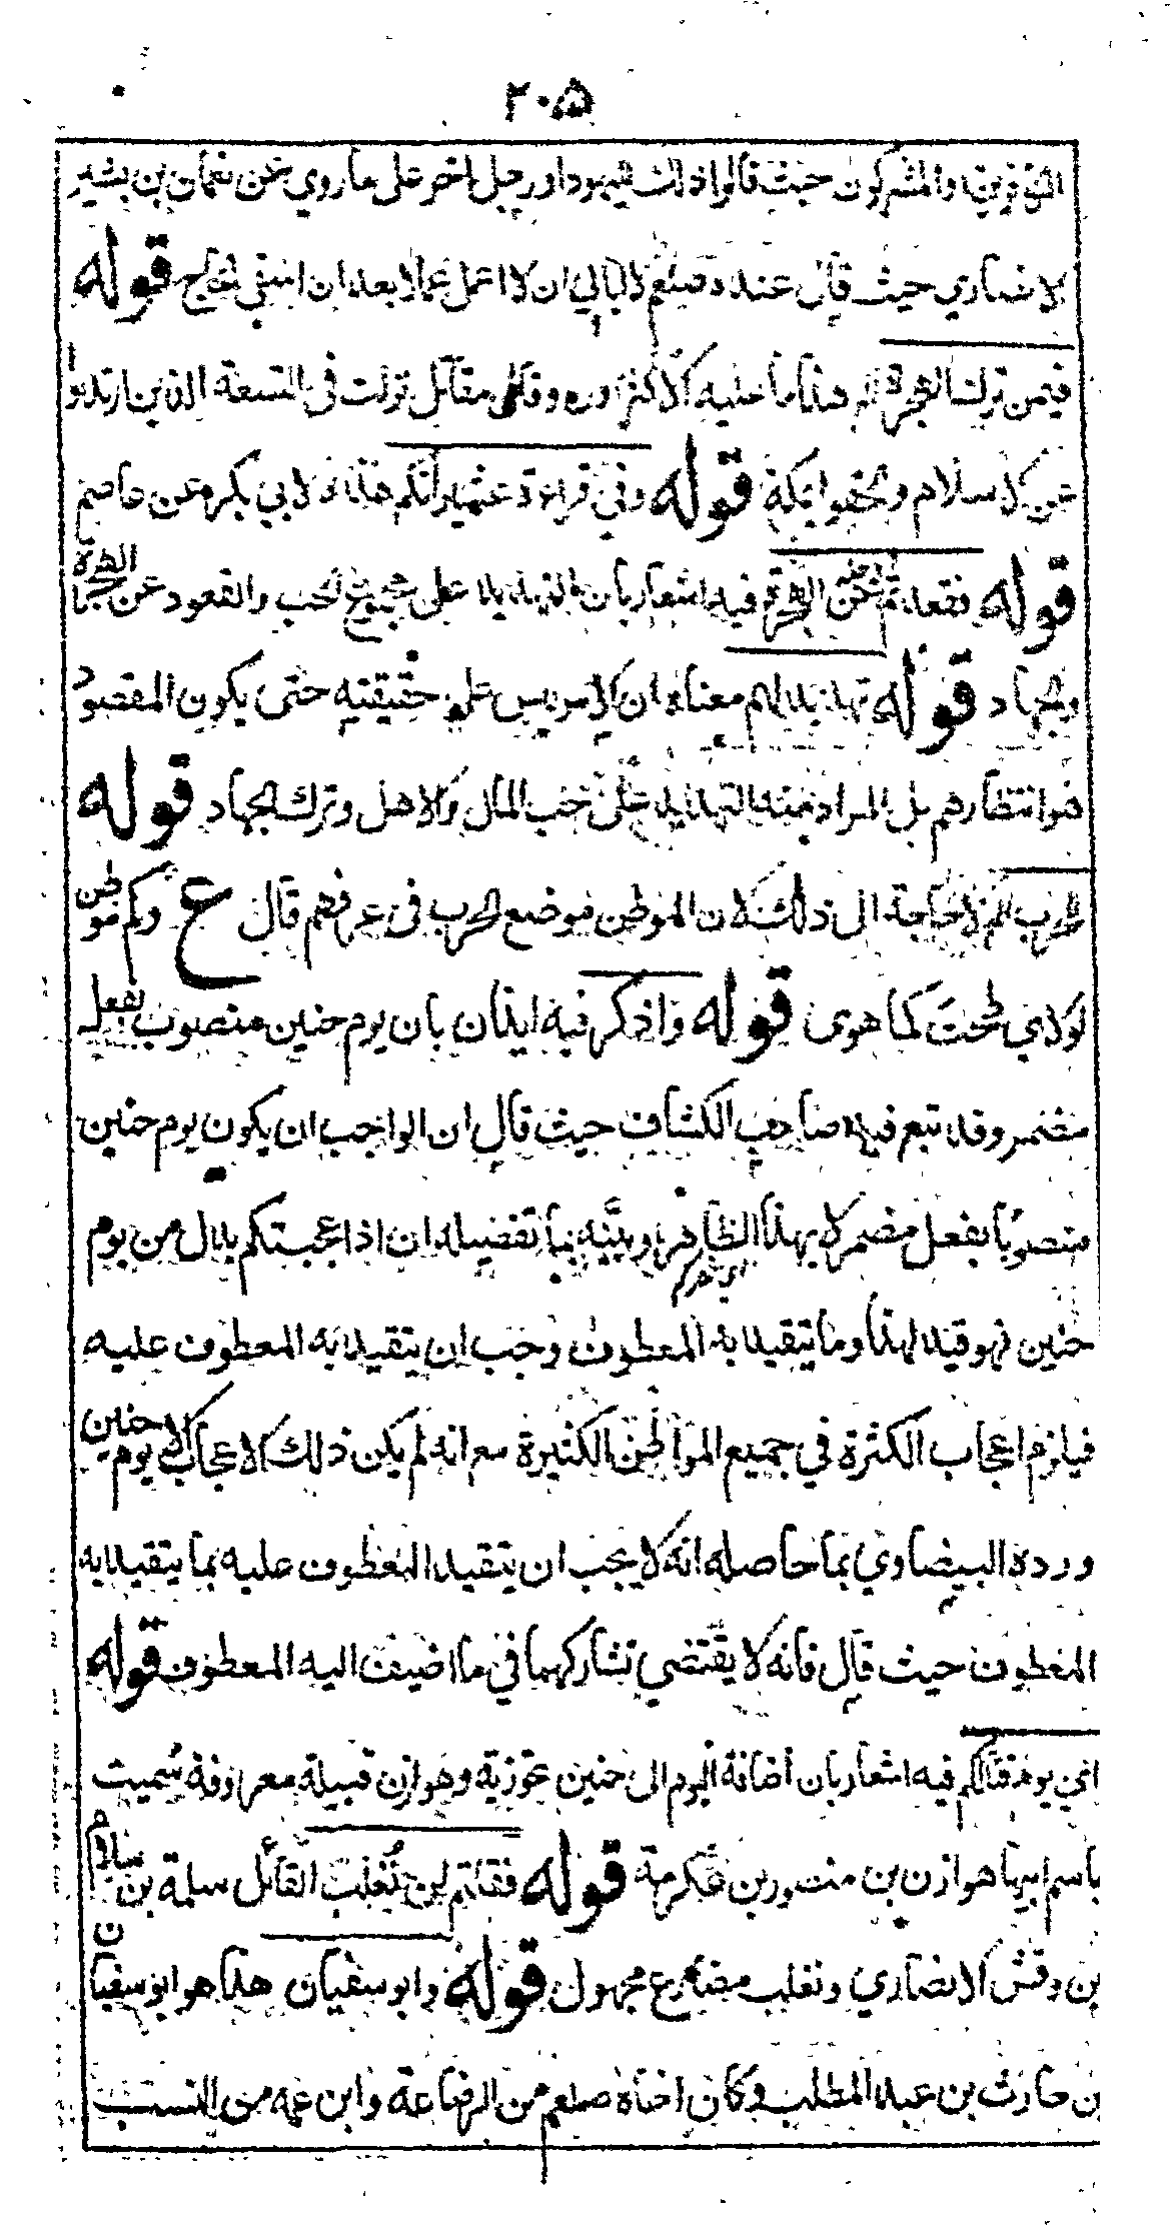 ٢٠٥
والمشركون حيث قالوا ذلك ليهود او رجل اخر على ما روي عن نعمان بن بشير
الانصاري حيث قال عنده صلعم لا ابالي ان لا اعمل عملا بعد ان اسقي الحاج قوله
فيمن ترك الهجرة الخ هذا ما عليه الاكثر وقال مقاتل نزلت في التسعة الذين ارتدوا
عن الاسلام ولحقوا بمكة قوله وفي قراءة عشيراتكم هذا لابي بكر عن عاصم
قوله فقعدتم عن الهجرة فيه اشعار بان التهديد على مجموع الحب والقعود عن الهجرة
والجهاد قوله تهديد لهم معناه ان الامر ليس على حقيقته حتى يكون المقصود
هو انتظارهم بل المراد منه التهديد على حب المال والاهل وترك الجهاد قوله
للحرب لا حاجة الى ذلك لان الموطن موضع الحرب في عرفهم قال ع وكم موطن
لولاي طحت كما هوى قوله واذكر فيه ايذان بان يوم حنين منصوب بفعل
مضمر وقد تبع فيه صاحب الكشاف حيث قال ان الواجب ان يكون يوم حنين
منصوبا بفعل مضمر لا بهذا الظاهر وبينه بما تفصيله ان اذ اعجبتكم بدل من يوم
حنين فهو قيد لهذا وما يتقيد به المعطوف وجب ان يتقيد به المعطوف عليه
فيلزم اعجاب الكثرة في جميع المواطن الكثيرة مع انه لم يكن ذلك الاعجاب الا يوم حنين
ورده البيضاوي بما حاصله انه لا يجب ان يتقيد المعطوف عليه بما يتقيد به
المعطوف حيث قال فانه لا يقتضي تشاركهما في ما اضيف اليه المعطوف قوله
اي يوم قتالكم فيه اشعار بان اضافة اليوم الى حنين تجوزية وهوازن قبيلة معروفة سميت
باسم ابيها هوازن بن منصور بن عكرمة قوله فقلتم لن نغلب القائل سلمة بن سلام
بن وقش الانصاري ونغلب مضارع مجهول قوله وابو سفيان هذا هو ابو سفيان
بن حارث بن عبد المطلب وكان اخاه صلعم من الرضاعة وابن عمه من النسب